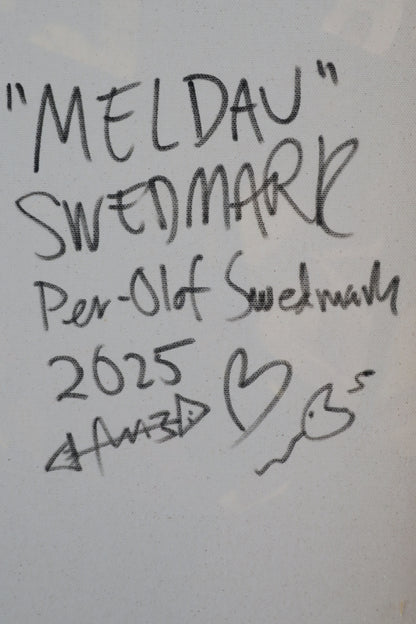 "MELDAU"
SWEDMARK
Per-Olof Swedmark
2025